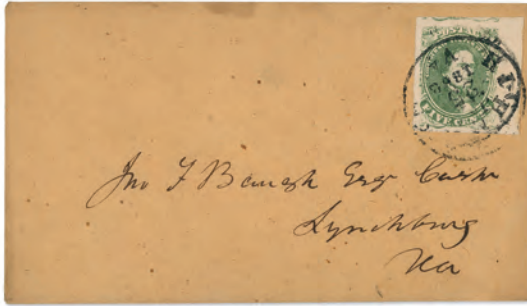 POSTAGE
FIVE CENTS
VA
1861
Jno F Baugh Esqr Cashr
Lynchburg
Va